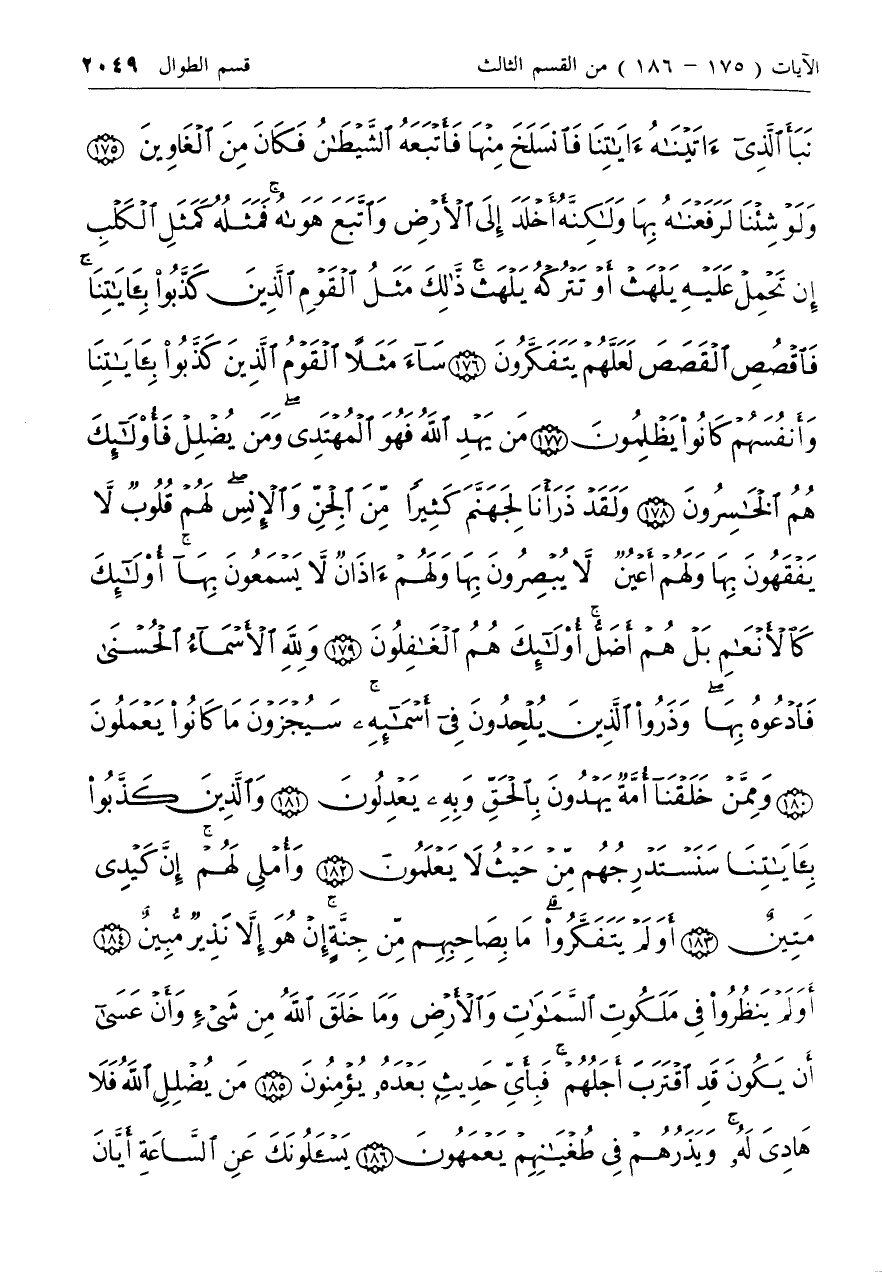 الآيات ( ١٧٥ - ١٨٦ ) من القسم الثالث قسم الطوال ٢٠٤٩
نَبَأَ ٱلَّذِىٓ ءَاتَيْنَٰهُ ءَايَٰتِنَا فَٱنسَلَخَ مِنْهَا فَأَتْبَعَهُ ٱلشَّيْطَٰنُ فَكَانَ مِنَ ٱلْغَاوِينَ ١٧٥
وَلَوْ شِئْنَا لَرَفَعْنَٰهُ بِهَا وَلَٰكِنَّهُۥٓ أَخْلَدَ إِلَى ٱلْأَرْضِ وَٱتَّبَعَ هَوَىٰهُ ۚ فَمَثَلُهُۥ كَمَثَلِ ٱلْكَلْبِ
إِن تَحْمِلْ عَلَيْهِ يَلْهَثْ أَوْ تَتْرُكْهُ يَلْهَث ۚ ذَّٰلِكَ مَثَلُ ٱلْقَوْمِ ٱلَّذِينَ كَذَّبُوا۟ بِـَٔايَٰتِنَا ۚ
فَٱقْصُصِ ٱلْقَصَصَ لَعَلَّهُمْ يَتَفَكَّرُونَ ١٧٦ سَآءَ مَثَلًا ٱلْقَوْمُ ٱلَّذِينَ كَذَّبُوا۟ بِـَٔايَٰتِنَا
وَأَنفُسَهُمْ كَانُوا۟ يَظْلِمُونَ ١٧٧ مَن يَهْدِ ٱللَّهُ فَهُوَ ٱلْمُهْتَدِى ۖ وَمَن يُضْلِلْ فَأُو۟لَٰٓئِكَ
هُمُ ٱلْخَٰسِرُونَ ١٧٨ وَلَقَدْ ذَرَأْنَا لِجَهَنَّمَ كَثِيرًا مِّنَ ٱلْجِنِّ وَٱلْإِنسِ ۖ لَهُمْ قُلُوبٌ لَّا
يَفْقَهُونَ بِهَا وَلَهُمْ أَعْيُنٌ لَّا يُبْصِرُونَ بِهَا وَلَهُمْ ءَاذَانٌ لَّا يَسْمَعُونَ بِهَآ ۚ أُو۟لَٰٓئِكَ
كَٱلْأَنْعَٰمِ بَلْ هُمْ أَضَلُّ ۚ أُو۟لَٰٓئِكَ هُمُ ٱلْغَٰفِلُونَ ١٧٩ وَلِلَّهِ ٱلْأَسْمَآءُ ٱلْحُسْنَىٰ
فَٱدْعُوهُ بِهَا ۖ وَذَرُوا۟ ٱلَّذِينَ يُلْحِدُونَ فِىٓ أَسْمَٰٓئِهِۦ ۚ سَيُجْزَوْنَ مَا كَانُوا۟ يَعْمَلُونَ
١٨٠ وَمِمَّنْ خَلَقْنَآ أُمَّةٌ يَهْدُونَ بِٱلْحَقِّ وَبِهِۦ يَعْدِلُونَ ١٨١ وَٱلَّذِينَ كَذَّبُوا۟
بِـَٔايَٰتِنَا سَنَسْتَدْرِجُهُم مِّنْ حَيْثُ لَا يَعْلَمُونَ ١٨٢ وَأُمْلِى لَهُمْ ۚ إِنَّ كَيْدِى
مَتِينٌ ١٨٣ أَوَلَمْ يَتَفَكَّرُوا۟ ۗ مَا بِصَاحِبِهِم مِّن جِنَّةٍ ۚ إِنْ هُوَ إِلَّا نَذِيرٌ مُّبِينٌ ١٨٤
أَوَلَمْ يَنظُرُوا۟ فِى مَلَكُوتِ ٱلسَّمَٰوَٰتِ وَٱلْأَرْضِ وَمَا خَلَقَ ٱللَّهُ مِن شَىْءٍ وَأَنْ عَسَىٰٓ
أَن يَكُونَ قَدِ ٱقْتَرَبَ أَجَلُهُمْ ۖ فَبِأَىِّ حَدِيثٍۭ بَعْدَهُۥ يُؤْمِنُونَ ١٨٥ مَن يُضْلِلِ ٱللَّهُ فَلَا
هَادِىَ لَهُۥ ۚ وَيَذَرُهُمْ فِى طُغْيَٰنِهِمْ يَعْمَهُونَ ١٨٦ يَسْـَٔلُونَكَ عَنِ ٱلسَّاعَةِ أَيَّانَ